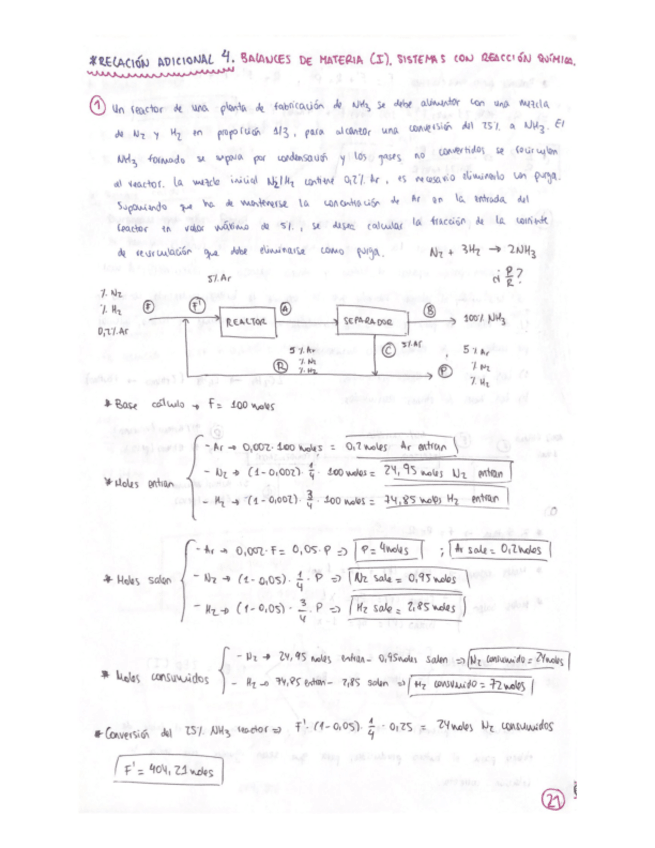 *RELACIÓN ADICIONAL 4. BALANCES DE MATERIA (I). SISTEMAS CON REACCIÓN QUÍMICA.
① Un reactor de una planta de fabricación de NH3 se debe alimentar con una mezcla
de N2 y H2 en proporción 1/3, para alcanzar una conversión del 25% a NH3. El
NH3 formado se separa por condensación y los gases no convertidos se recirculan
al reactor. La mezcla inicial N2/H2 contiene 0,2% Ar, es necesario eliminarlo un purga.
Suponiendo que ha de mantenerse la concentración de Ar en la entrada del
reactor en valor máximo de 5%, se desea calcular la fracción de la corriente
de recirculación que debe eliminarse como purga.
N2 + 3H2 → 2NH3
¿ P/R ?
5% Ar
% N2
% H2
0,2% Ar
F
F'
REACTOR
A
SEPARADOR
B
100% NH3
C
5% Ar
R
5% Ar
% N2
% H2
P
5% Ar
% N2
% H2
* Base cálculo → F = 100 moles
* Moles entran
- Ar → 0,002 · 100 moles = 0,2 moles Ar entran
- N2 → (1-0,002) · 1/4 · 100 moles = 24,95 moles N2 entran
- H2 → (1-0,002) · 3/4 · 100 moles = 74,85 moles H2 entran
* Moles salen
- Ar → 0,002 · F = 0,05 · P ⇒ P = 4 moles ; Ar sale = 0,2 moles
- N2 → (1-0,05) · 1/4 · P ⇒ N2 sale = 0,95 moles
- H2 → (1-0,05) · 3/4 · P ⇒ H2 sale = 2,85 moles
* Moles consumidos
- N2 → 24,95 moles entran - 0,95 moles salen ⇒ N2 consumido = 24 moles
- H2 → 74,85 entran - 2,85 salen ⇒ H2 consumido = 72 moles
* Conversión del 25% NH3 reactor ⇒ F' · (1-0,05) · 1/4 · 0,25 = 24 moles N2 consumidos
F' = 404,21 moles
21